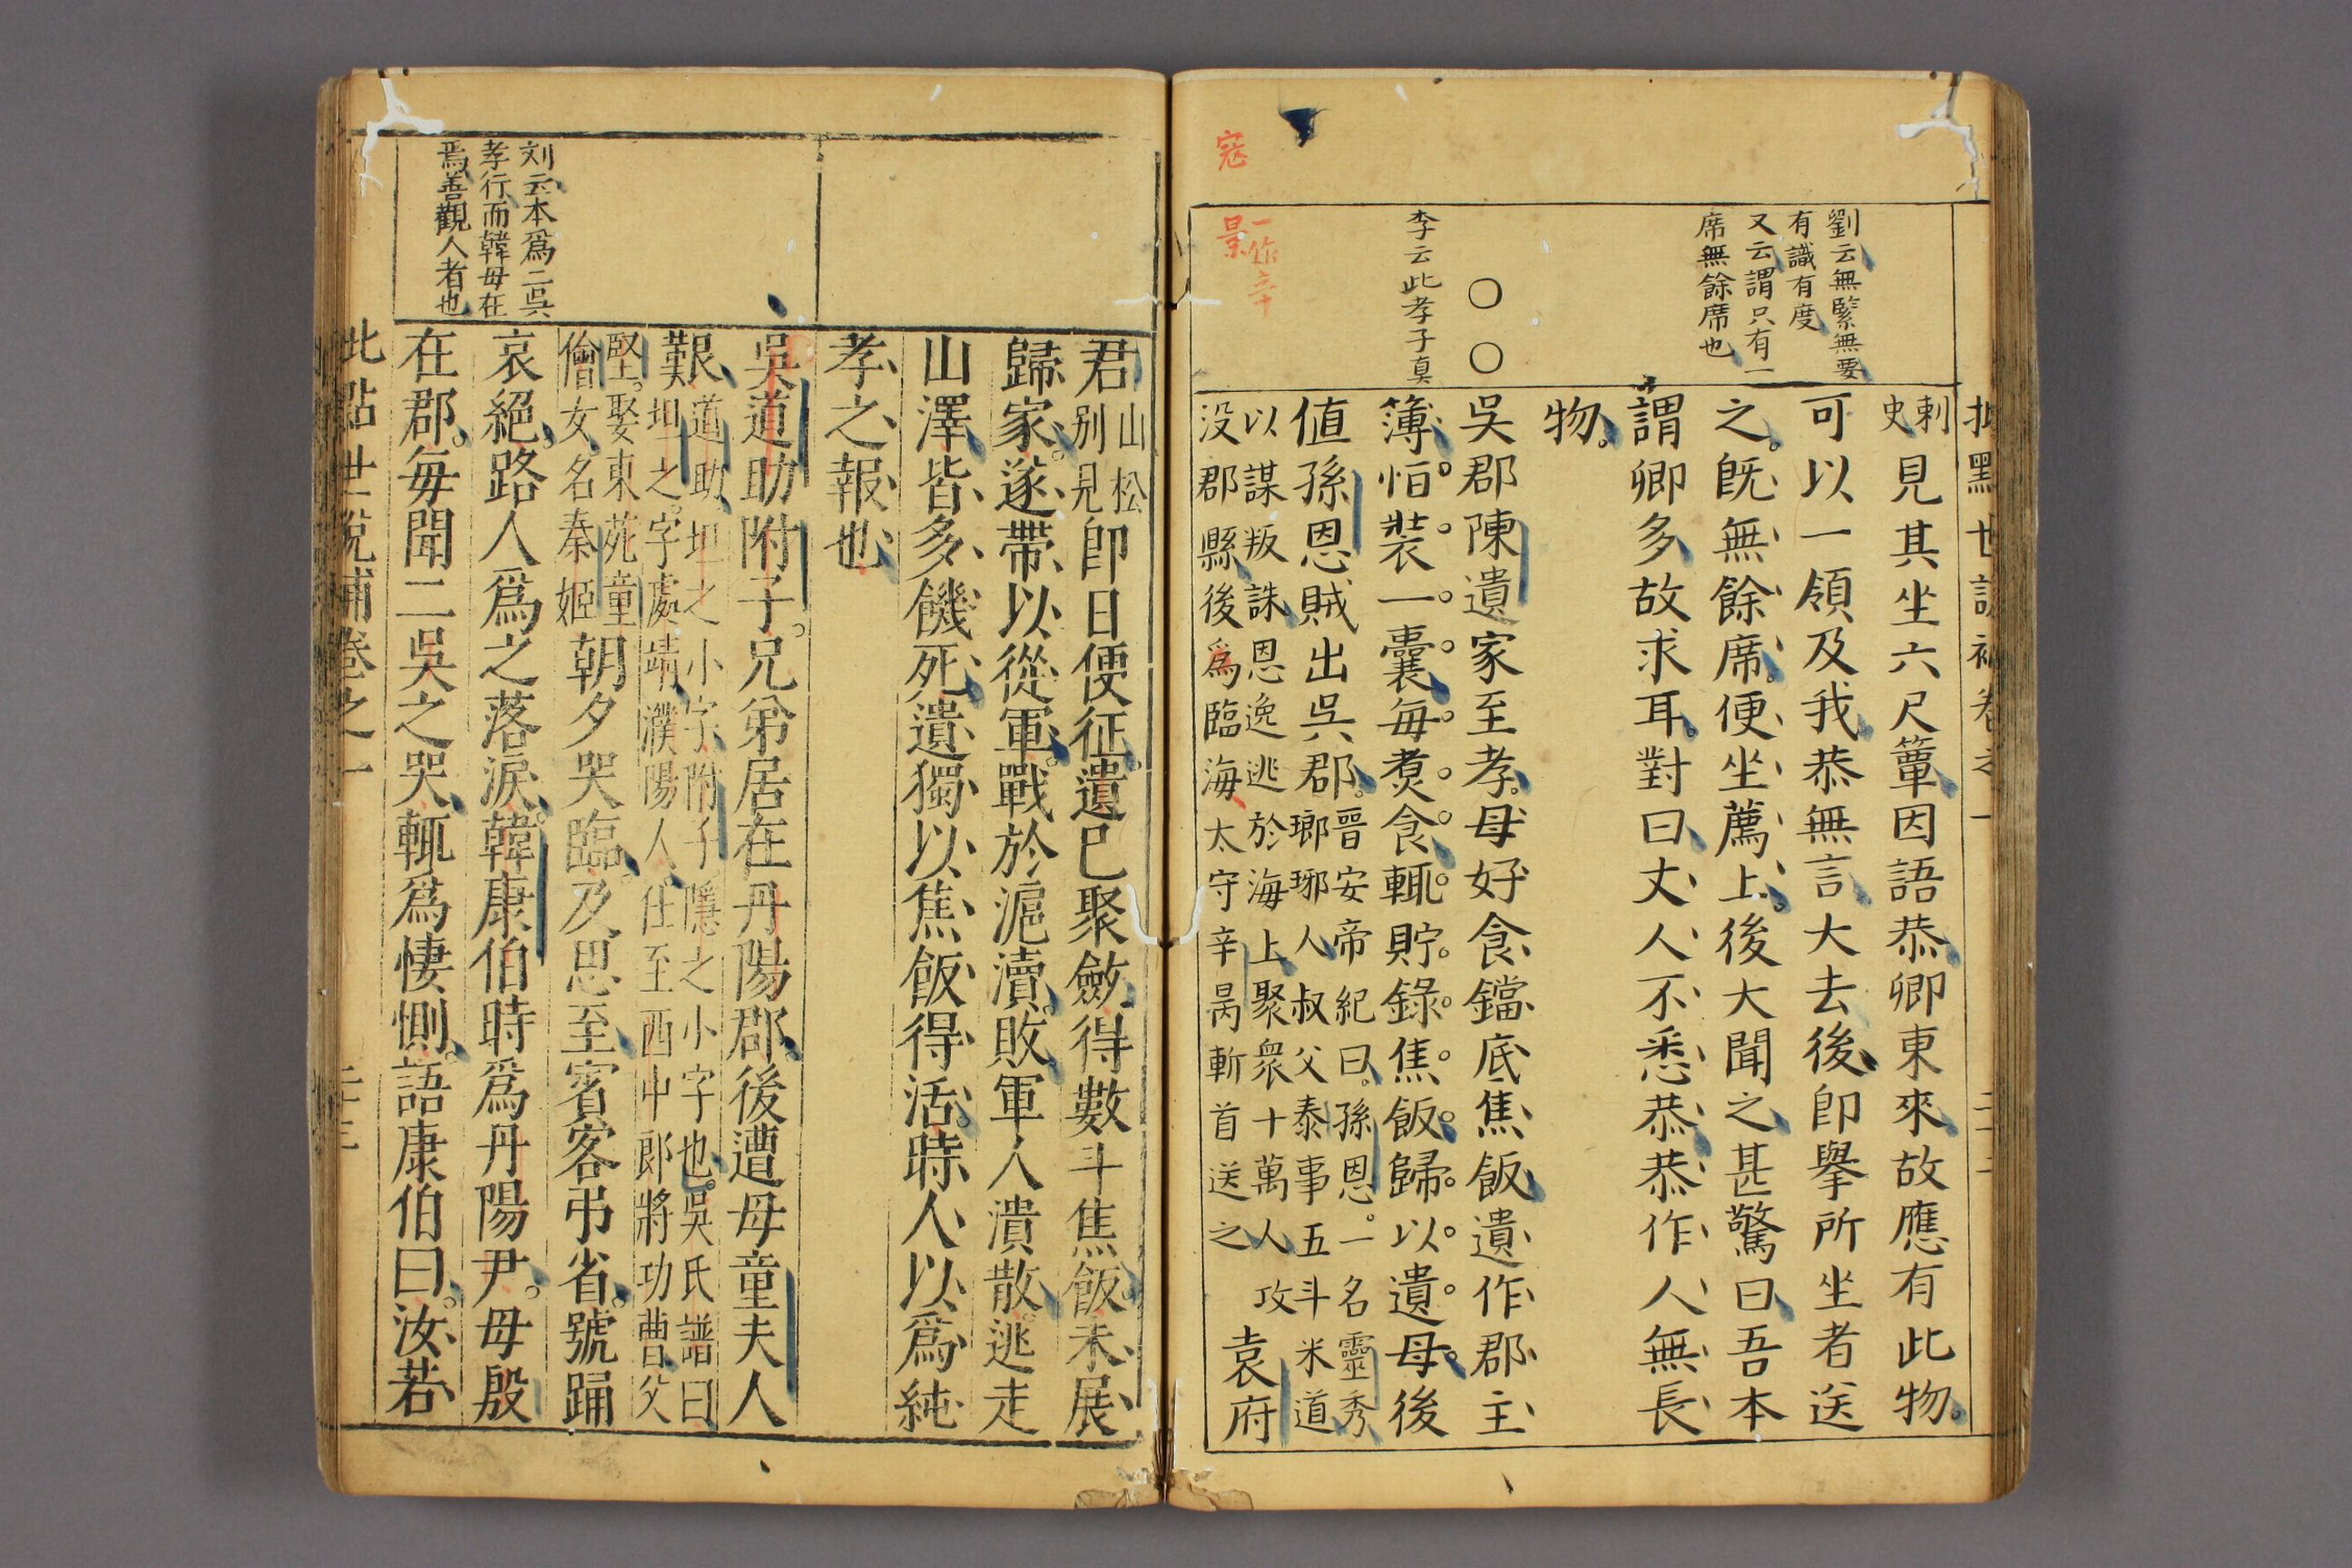 批點世說補卷之一
二十二
劉云無緊無要
有識有度
又云謂只有一
席無餘席也
李云此孝子真
寇
一作辛
景
○○
刺
史見其坐六尺簟因語恭卿東來故應有此物
可以一領及我恭無言大去後即舉所坐者送
之既無餘席便坐薦上後大聞之甚驚曰吾本
謂卿多故求耳對曰丈人不悉恭恭作人無長
物
吳郡陳遺家至孝母好食鐺底焦飯遺作郡主
簿恒裝一囊每煑食輒貯錄焦飯歸以遺母後
值孫恩賊出吳郡
晉安帝紀曰孫恩一名靈秀
瑯琊人叔父泰事五斗米道
以謀叛誅恩逸逃於海上聚衆十萬人攻
没郡縣後爲臨海太守辛昺斬首送之
袁府
君
山松
别見
即日便征遺已聚斂得數斗焦飯未展
歸家遂帶以從軍戰於滬瀆敗軍人潰散逃走
山澤皆多饑死遺獨以焦飯得活時人以爲純
孝之報也
吳道助附子兄弟居在丹陽郡後遭母童夫人
艱
道助坦之小字附子隱之小字也吳氏譜曰
坦之字處靖濮陽人仕至西中郎將功曹父
堅娶東莞童
儈女名秦姬
朝夕哭臨及思至賓客弔省號踊
哀絕路人爲之落淚韓康伯時爲丹陽尹母殷
在郡每聞二吳之哭輒爲悽惻語康伯曰汝若
刘云本爲二吳
孝行而韓母在
焉善觀人者也
批點世說補卷之一
二十二